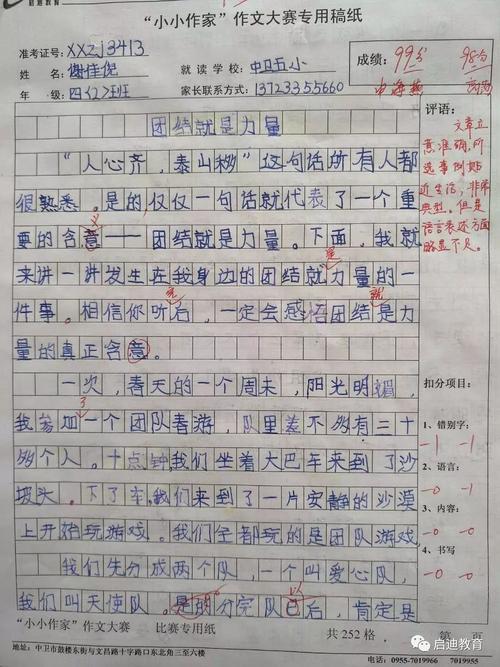 启迪教育
“小小作家”作文大赛专用稿纸
准考证号: XXZJ3413
姓 名: 谢佳倪
就 读 学 校: 中卫五小
年 级: 四(2)班
家长联系方式: 13723355660
成绩: 99分 98分
评语:
文章立
意准确,所
选事例贴
近生活,非常
典型。但是
语言表述方面
略显不足。
团结就是力量
“人心齐,泰山移”这句话所有人都
很熟悉。是的,仅仅一句话就代表了一个重
要的含意——团结就是力量。下面,我就
来讲一讲发生在我身边的团结就力量的一
件事。相信你听后,一定会感悟团结是力
量的真正含意。
一次,春天的一个周末,阳光明媚,
我参加一个团队春游,队里差不够有三十
够个人。十点钟我们坐着大巴车来到了沙
坡头。下了车,我们来到了一片安静的沙漠
上开始玩游戏。我们全都玩的是团队游戏
我们先分成两个队,一个叫爱心队,
我们叫天使队。是的分完队已后,肯定是
义
是
完
就
了
以
扣分项目:
1、错别字:
-1 -1
2、语言:
-0 -1
3、内容:
-0 -0
4、书写
-0 -0
“小小作家”作文大赛 比赛专用纸
共 252 格
第 页
地址:中卫市鼓楼东街与文昌路十字路口东北角三楼大厅
电话:0955-7019966 7019955
启迪教育